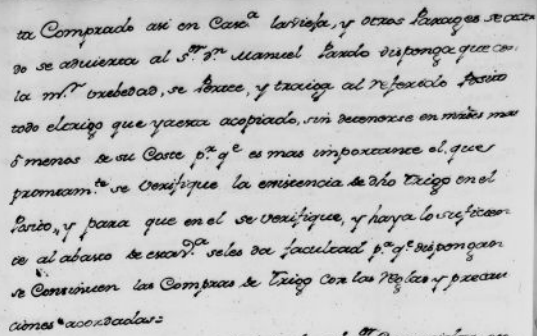 ta Comprado asi en Cast.ª la Vieja, y otros Parages se acor
do se advierta al S.ʳ Dⁿ Manuel Pardo disponga que co.
la mʳ brebedad, se Porte, y traiga al referido Posito
todo el trigo que ya esta acopiado, sin detenerse en mrs̃ mas
ô menos de su Coste p.ª qᵉ es mas importante el que
promtam.ᵗᵉ se Verifique la existencia de dho Trigo en el
Posito, y para que en el se verifique, y haya lo suficien
te al abasto de esta V.ª se les da facultad p.ª qᵉ dispongan
se Continuen las Compras de Trigo con las reglas y precau
ciones acordadas=